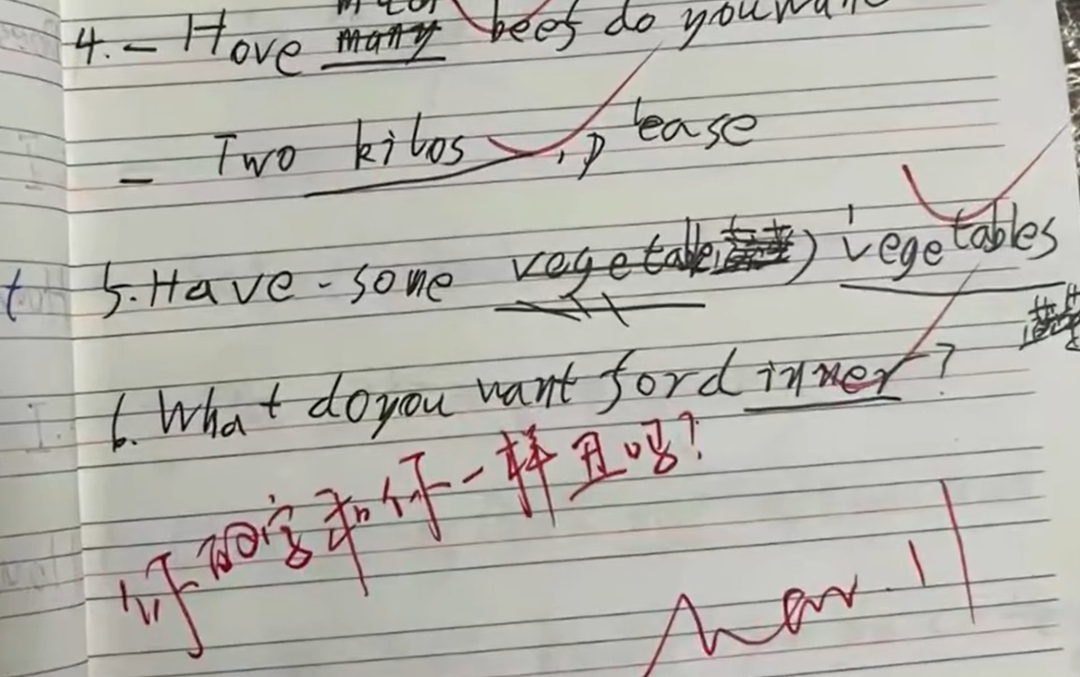 4. - Hove many beef do you wan
- Two kilos, please
5. Have - some vegetable) vegetables
6. What do you want for dinner?
你的字和你一样丑吗?
Mar. 11